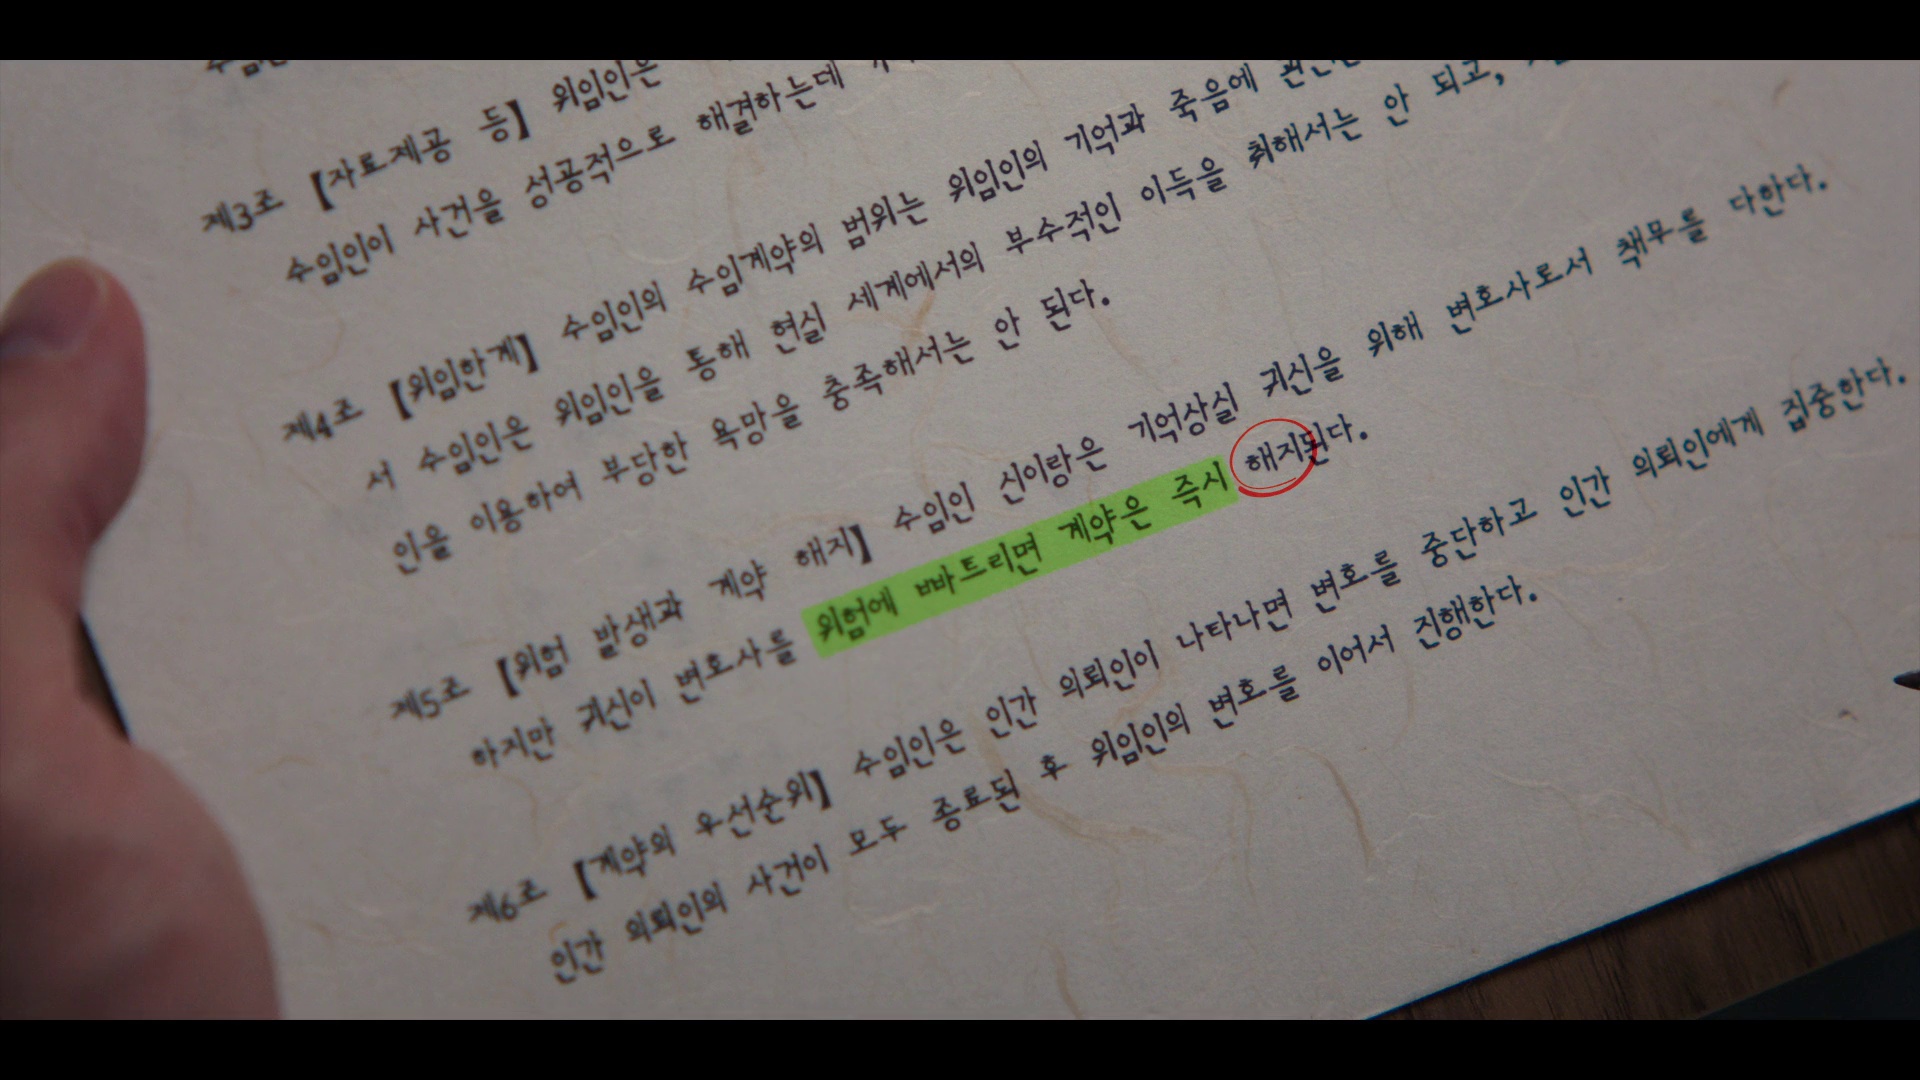 수임인
제3조 【자료제공 등】 위임인은
수임인이 사건을 성공적으로 해결하는데
제4조 【위임한계】 수임인의 수임계약의 범위는 위임인의 기억과 죽음에
서 수임인은 위임인을 통해 현실 세계에서의 부수적인 이득을 취해서는 안 되고,
인을 이용하여 부당한 욕망을 충족해서는 안 된다.
제5조 【위험 발생과 계약 해지】 수임인 신이랑은 기억상실 귀신을 위해 변호사로서 책무를 다한다.
하지만 귀신이 변호사를 위험에 빠트리면 계약은 즉시 해지된다.
제6조 【계약의 우선순위】 수임인은 인간 의뢰인이 나타나면 변호를 중단하고 인간 의뢰인에게 집중한다.
인간 의뢰인의 사건이 모두 종료된 후 위임인의 변호를 이어서 진행한다.